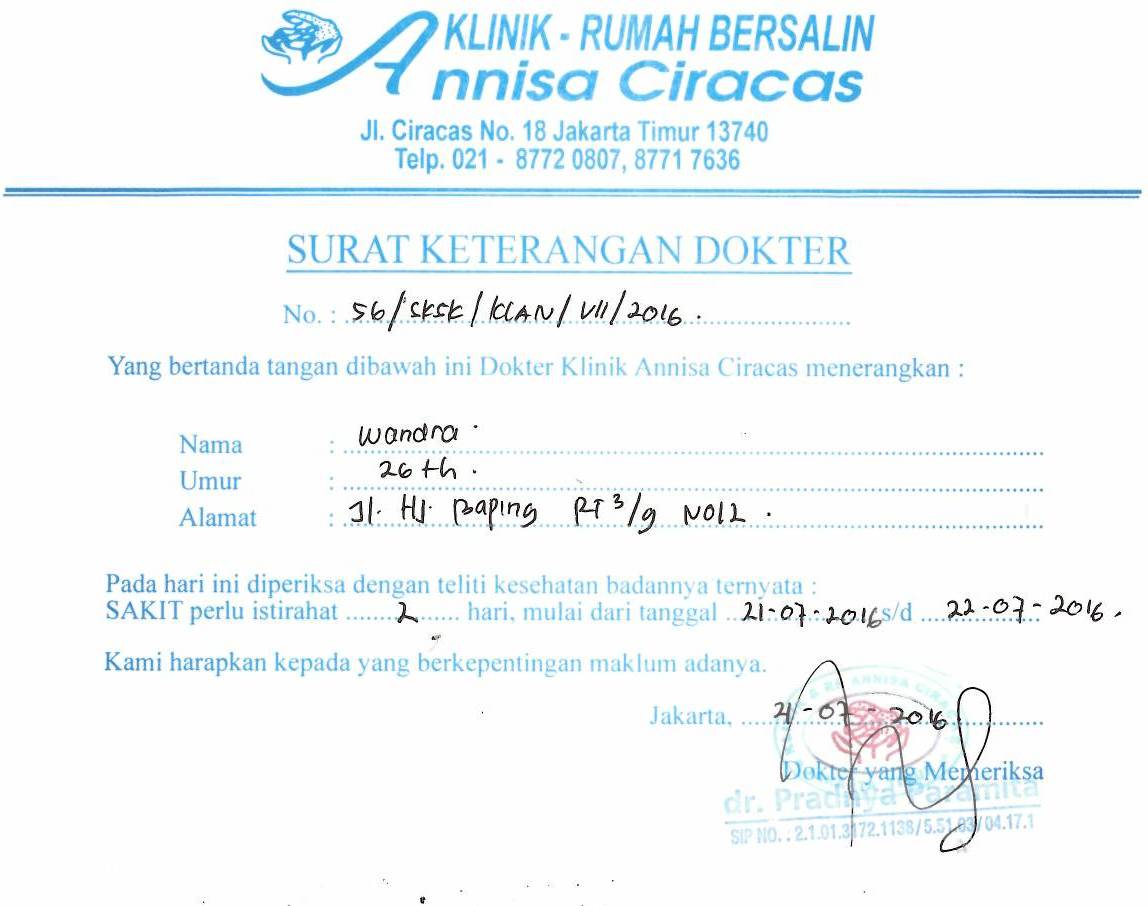 KLINIK - RUMAH BERSALIN
Annisa Ciracas
Jl. Ciracas No. 18 Jakarta Timur 13740
Telp. 021 - 8772 0807, 8771 7636
SURAT KETERANGAN DOKTER
No. : 56/SKSK/KLAN/VII/2016.
Yang bertanda tangan dibawah ini Dokter Klinik Annisa Ciracas menerangkan :
Nama : Wandra
Umur : 26 th.
Alamat : Jl. Hj. Baping RT 3/9 No12.
Pada hari ini diperiksa dengan teliti kesehatan badannya ternyata :
SAKIT perlu istirahat ....... 2 ...... hari, mulai dari tanggal 21-07-2016 s/d 22-07-2016.
Kami harapkan kepada yang berkepentingan maklum adanya.
Jakarta, 21-07-2016
Dokter yang Memeriksa
dr. Pradnya Paramita
SIP NO. : 2.1.01.3172.1138/5.51.03/04.17.1